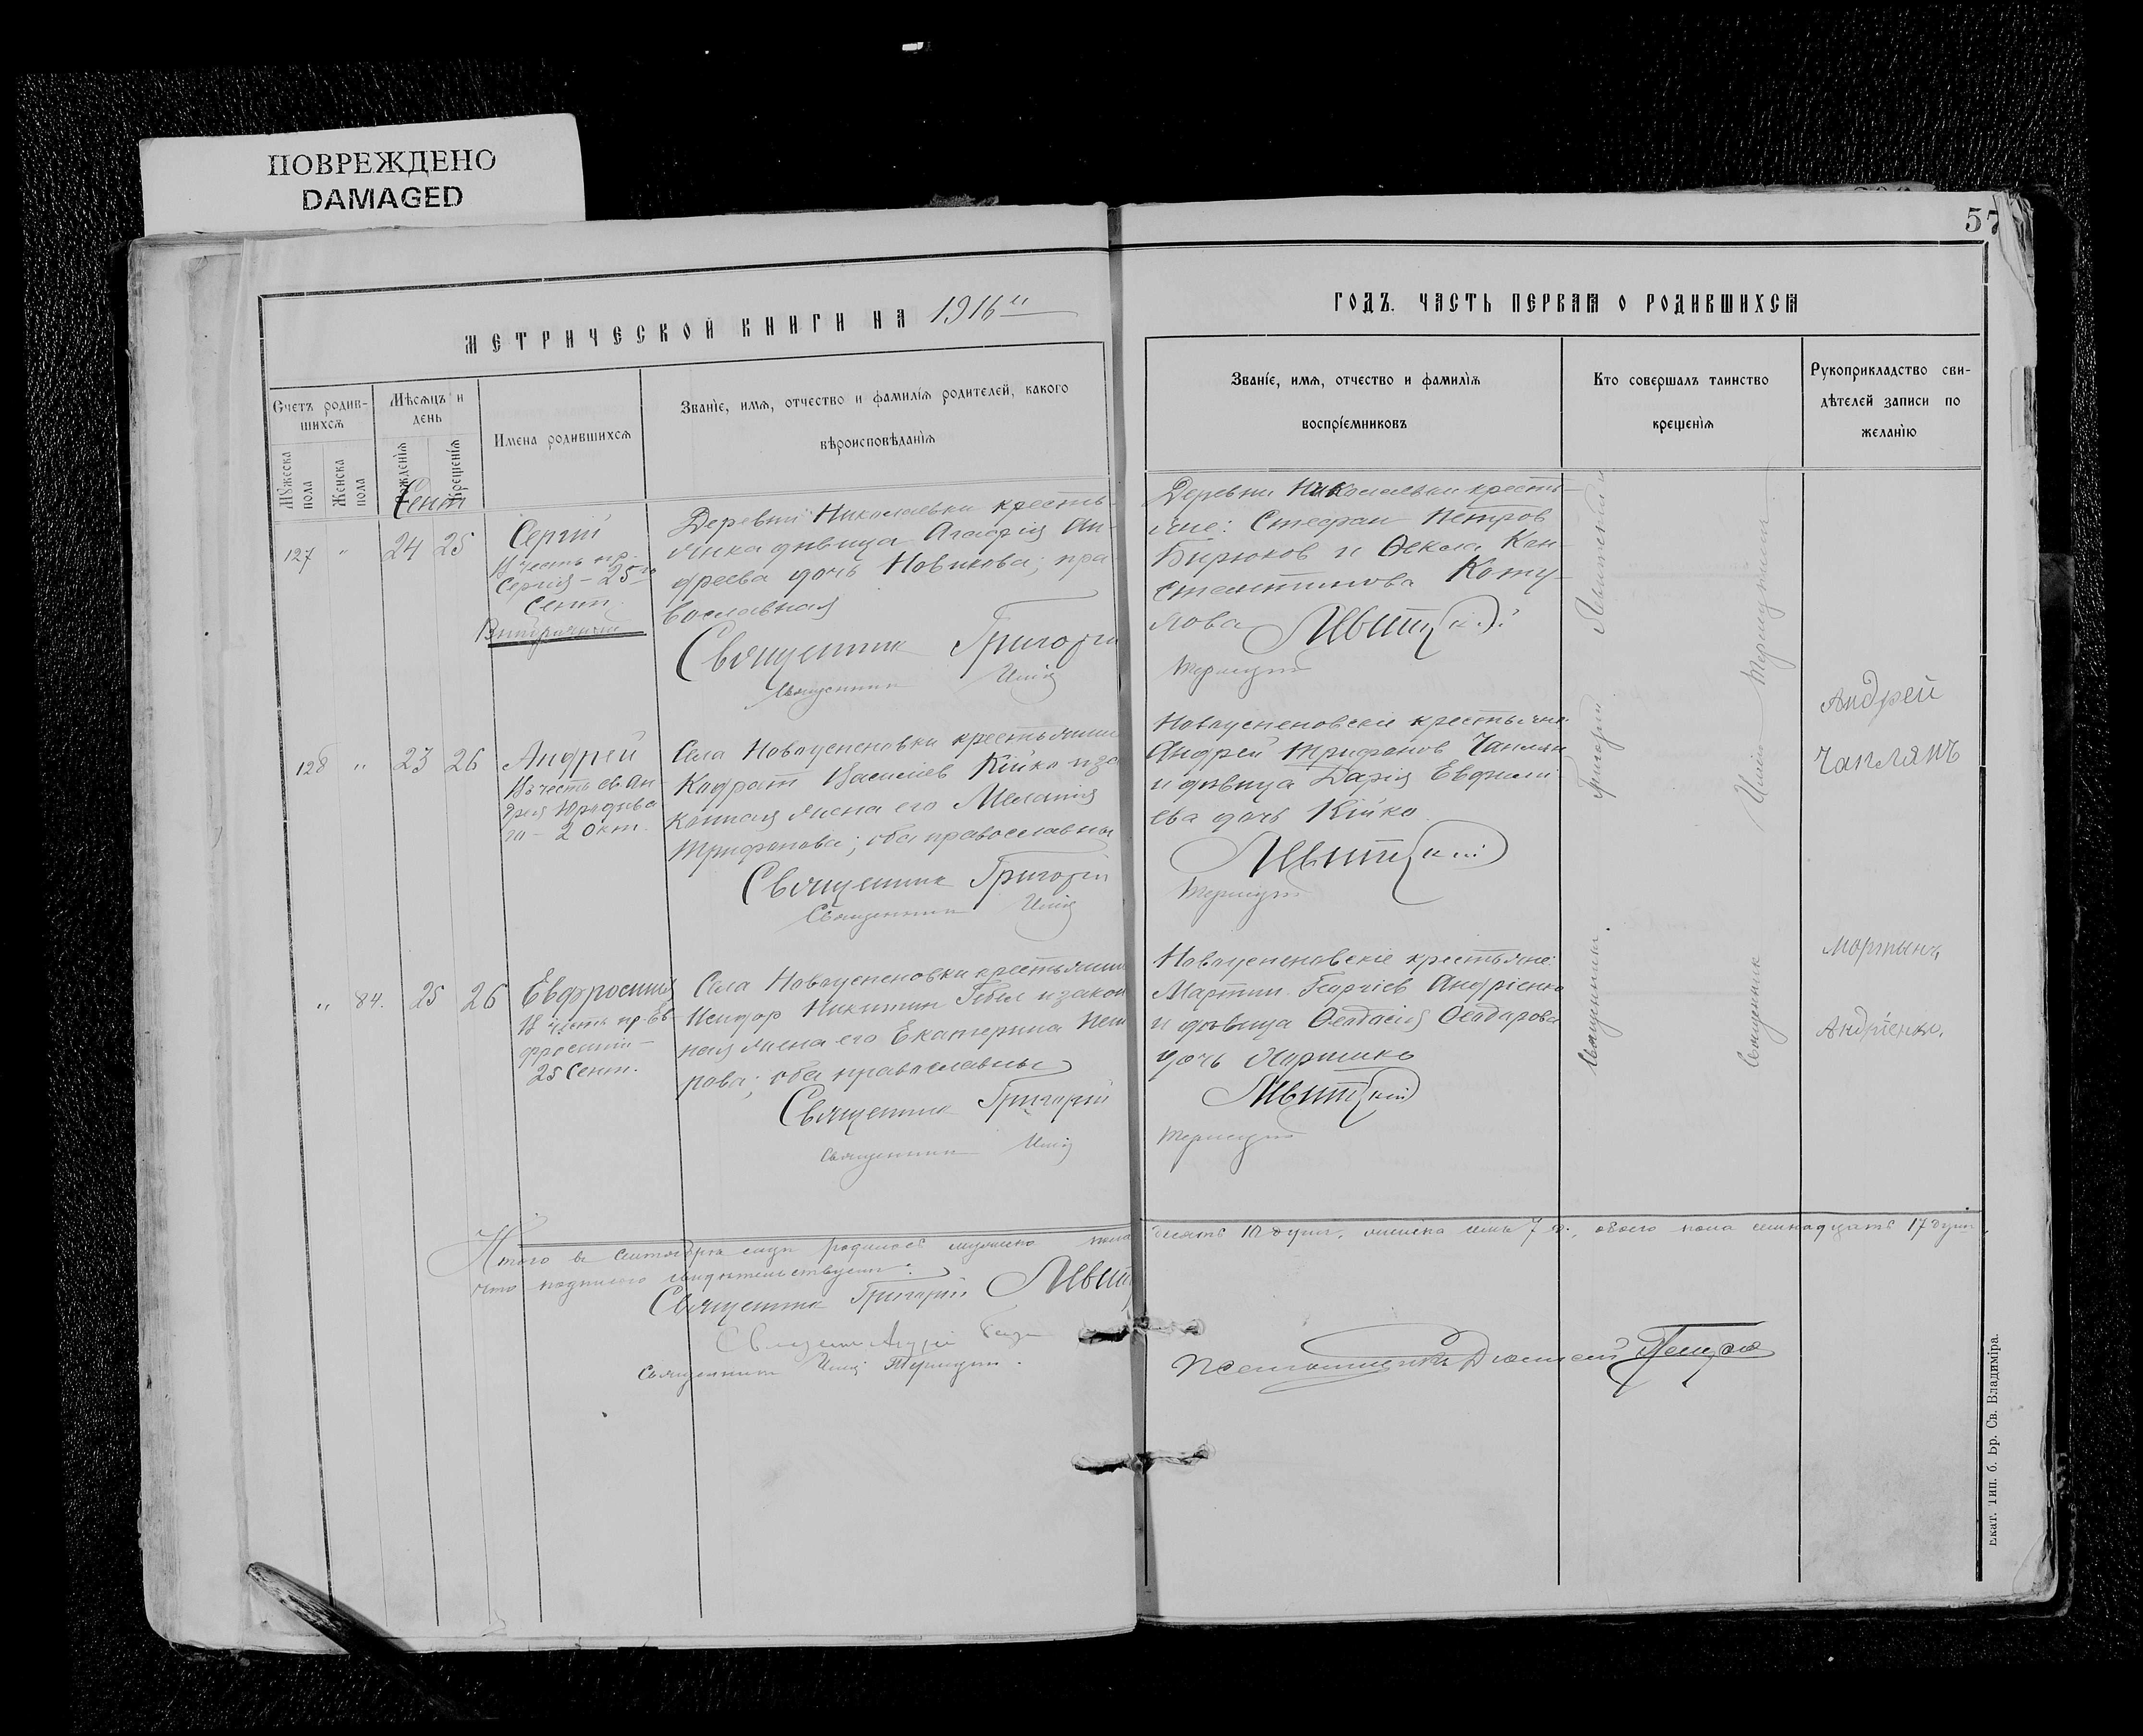 ПОВРЕЖДЕНО
DAMAGED
57
МЕТРИЧЕСКОЙ КНИГИ НА 1916й
ГОДЪ. ЧАСТЬ ПЕРВАЯ О РОДИВШИХСЯ
Счетъ родив-
шихся
Мужеска
пола
Женска
пола
Мѣсяцъ и
день
рожденія
крещенія
Имена родившихся
Званіе, имя, отчество и фамилія родителей, какого
вѣроисповѣданія
Званіе, имя, отчество и фамилія
воспріемниковъ
Кто совершалъ таинство
крещенія
Рукоприкладство сви-
дѣтелей записи по
желанію
Сент
127 " 24 25
Сергій
В честь пр.
Сергія - 25го
Сент.
Деревни Николаевки кресть-
янка дѣвица Агафія Ан-
дреева дочь Новикова; пра-
вославная
Священник Григорій
Священник Илія
Деревни Николаевки кресть-
яне: Стефан Петров
Бирюков и Ѳекла Кон-
стантинова
Левитскій
128 " 23 26
Андрей
В честь св. Ан-
дрея Юродива-
го - 2 Окт.
Села Новоуспеновки крестьянин
Кодрат Васильев Кійко и за-
конная жена его Меланія
Трифонова; оба православны
Священник Григорій
Священник Илія
Новоуспеновскіе крестьяне:
Андрей Трифонов Чаплян
и дѣвица Дарія Евфимі-
ева дочь Кійко
Левитскій
Андрей
Чаплянъ
" 84. 25 26
Евфросинія
В честь пр. Ев-
фросиніи -
25 Сент.
Села Новоуспеновки крестьянин
Исидор Никитин и закон-
ная жена его Екатерина Пет-
рова; оба православны
Священник Григорій
Священник Илія
Новоуспеновскіе крестьяне:
Мартин Георгіев Андріенко
и дѣвица Ѳеодосія Ѳеодорова
дочь
Левитскій
Мартынъ
Андріенко.
Священник Григорій Левитскій
Священник Илія
Итого в Сентябрѣ сих родилось мужеска пола десять 10 душ, женска семь 7 д., обоего пола семнадцать 17 душ
что подписью свидѣтельствуем:
Священник Григорій Левитскій
Священник Илія
Псаломщикъ
Екат. Тип. б. Бр. Св. Владиміра.